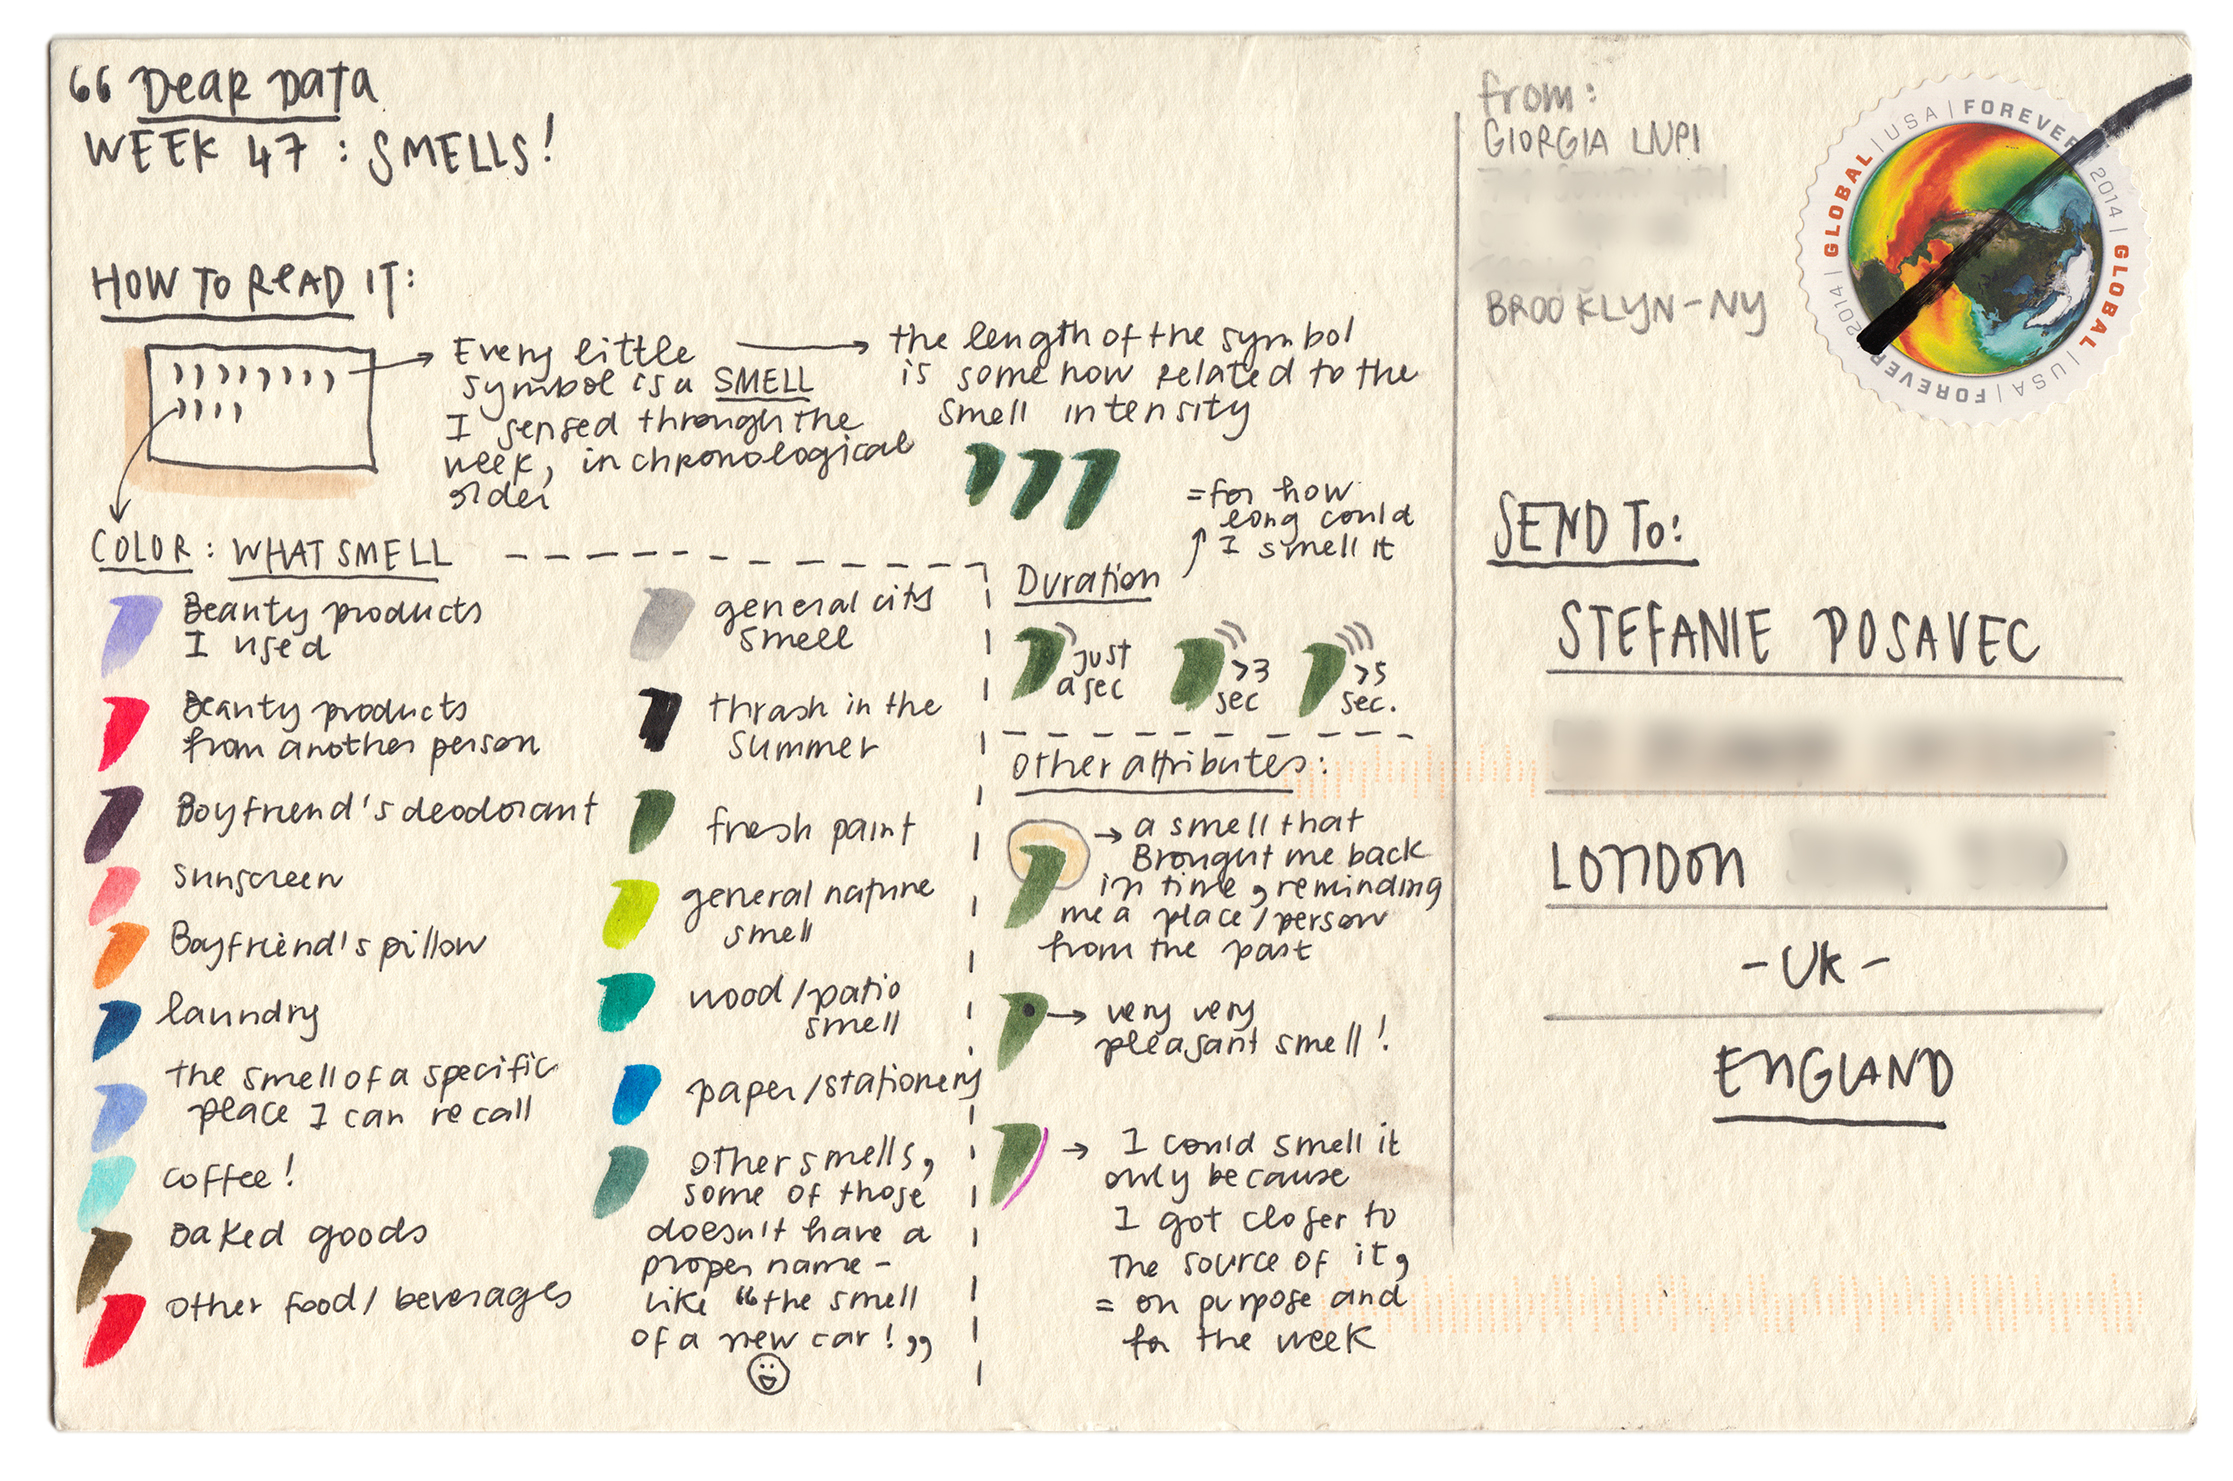 “ Dear Data
WEEK 47 : SMELLS!
HOW TO READ IT:
Every little
symbol is a SMELL
I sensed through the
week, in chronological
order
the length of the symbol
is somehow related to the
smell intensity
COLOR: WHAT SMELL
Beauty products
I used
Beauty products
from another person
Boyfriend's deodorant
sunscreen
Boyfriend's pillow
laundry
the smell of a specific
place I can recall
coffee!
Baked goods
other food / beverages
general city
smell
thrash in the
summer
fresh paint
general nature
smell
wood / patio
smell
paper / stationery
other smells,
some of those
doesn't have a
proper name -
like “the smell
of a new car! ”
= for how
long could
I smell it
Duration
just
a sec
>3
sec
>5
sec.
other attributes:
a smell that
Brought me back
in time, reminding
me a place / person
from the past
very very
pleasant smell!
I could smell it
only because
I got closer to
the source of it,
= on purpose and
for the week
from:
GIORGIA LUPI
BROOKLYN - NY
GLOBAL | USA | FOREVER 2014 | GLOBAL | USA | FOREVER 2014 |
SEND TO:
STEFANIE POSAVEC
LONDON
- UK -
ENGLAND